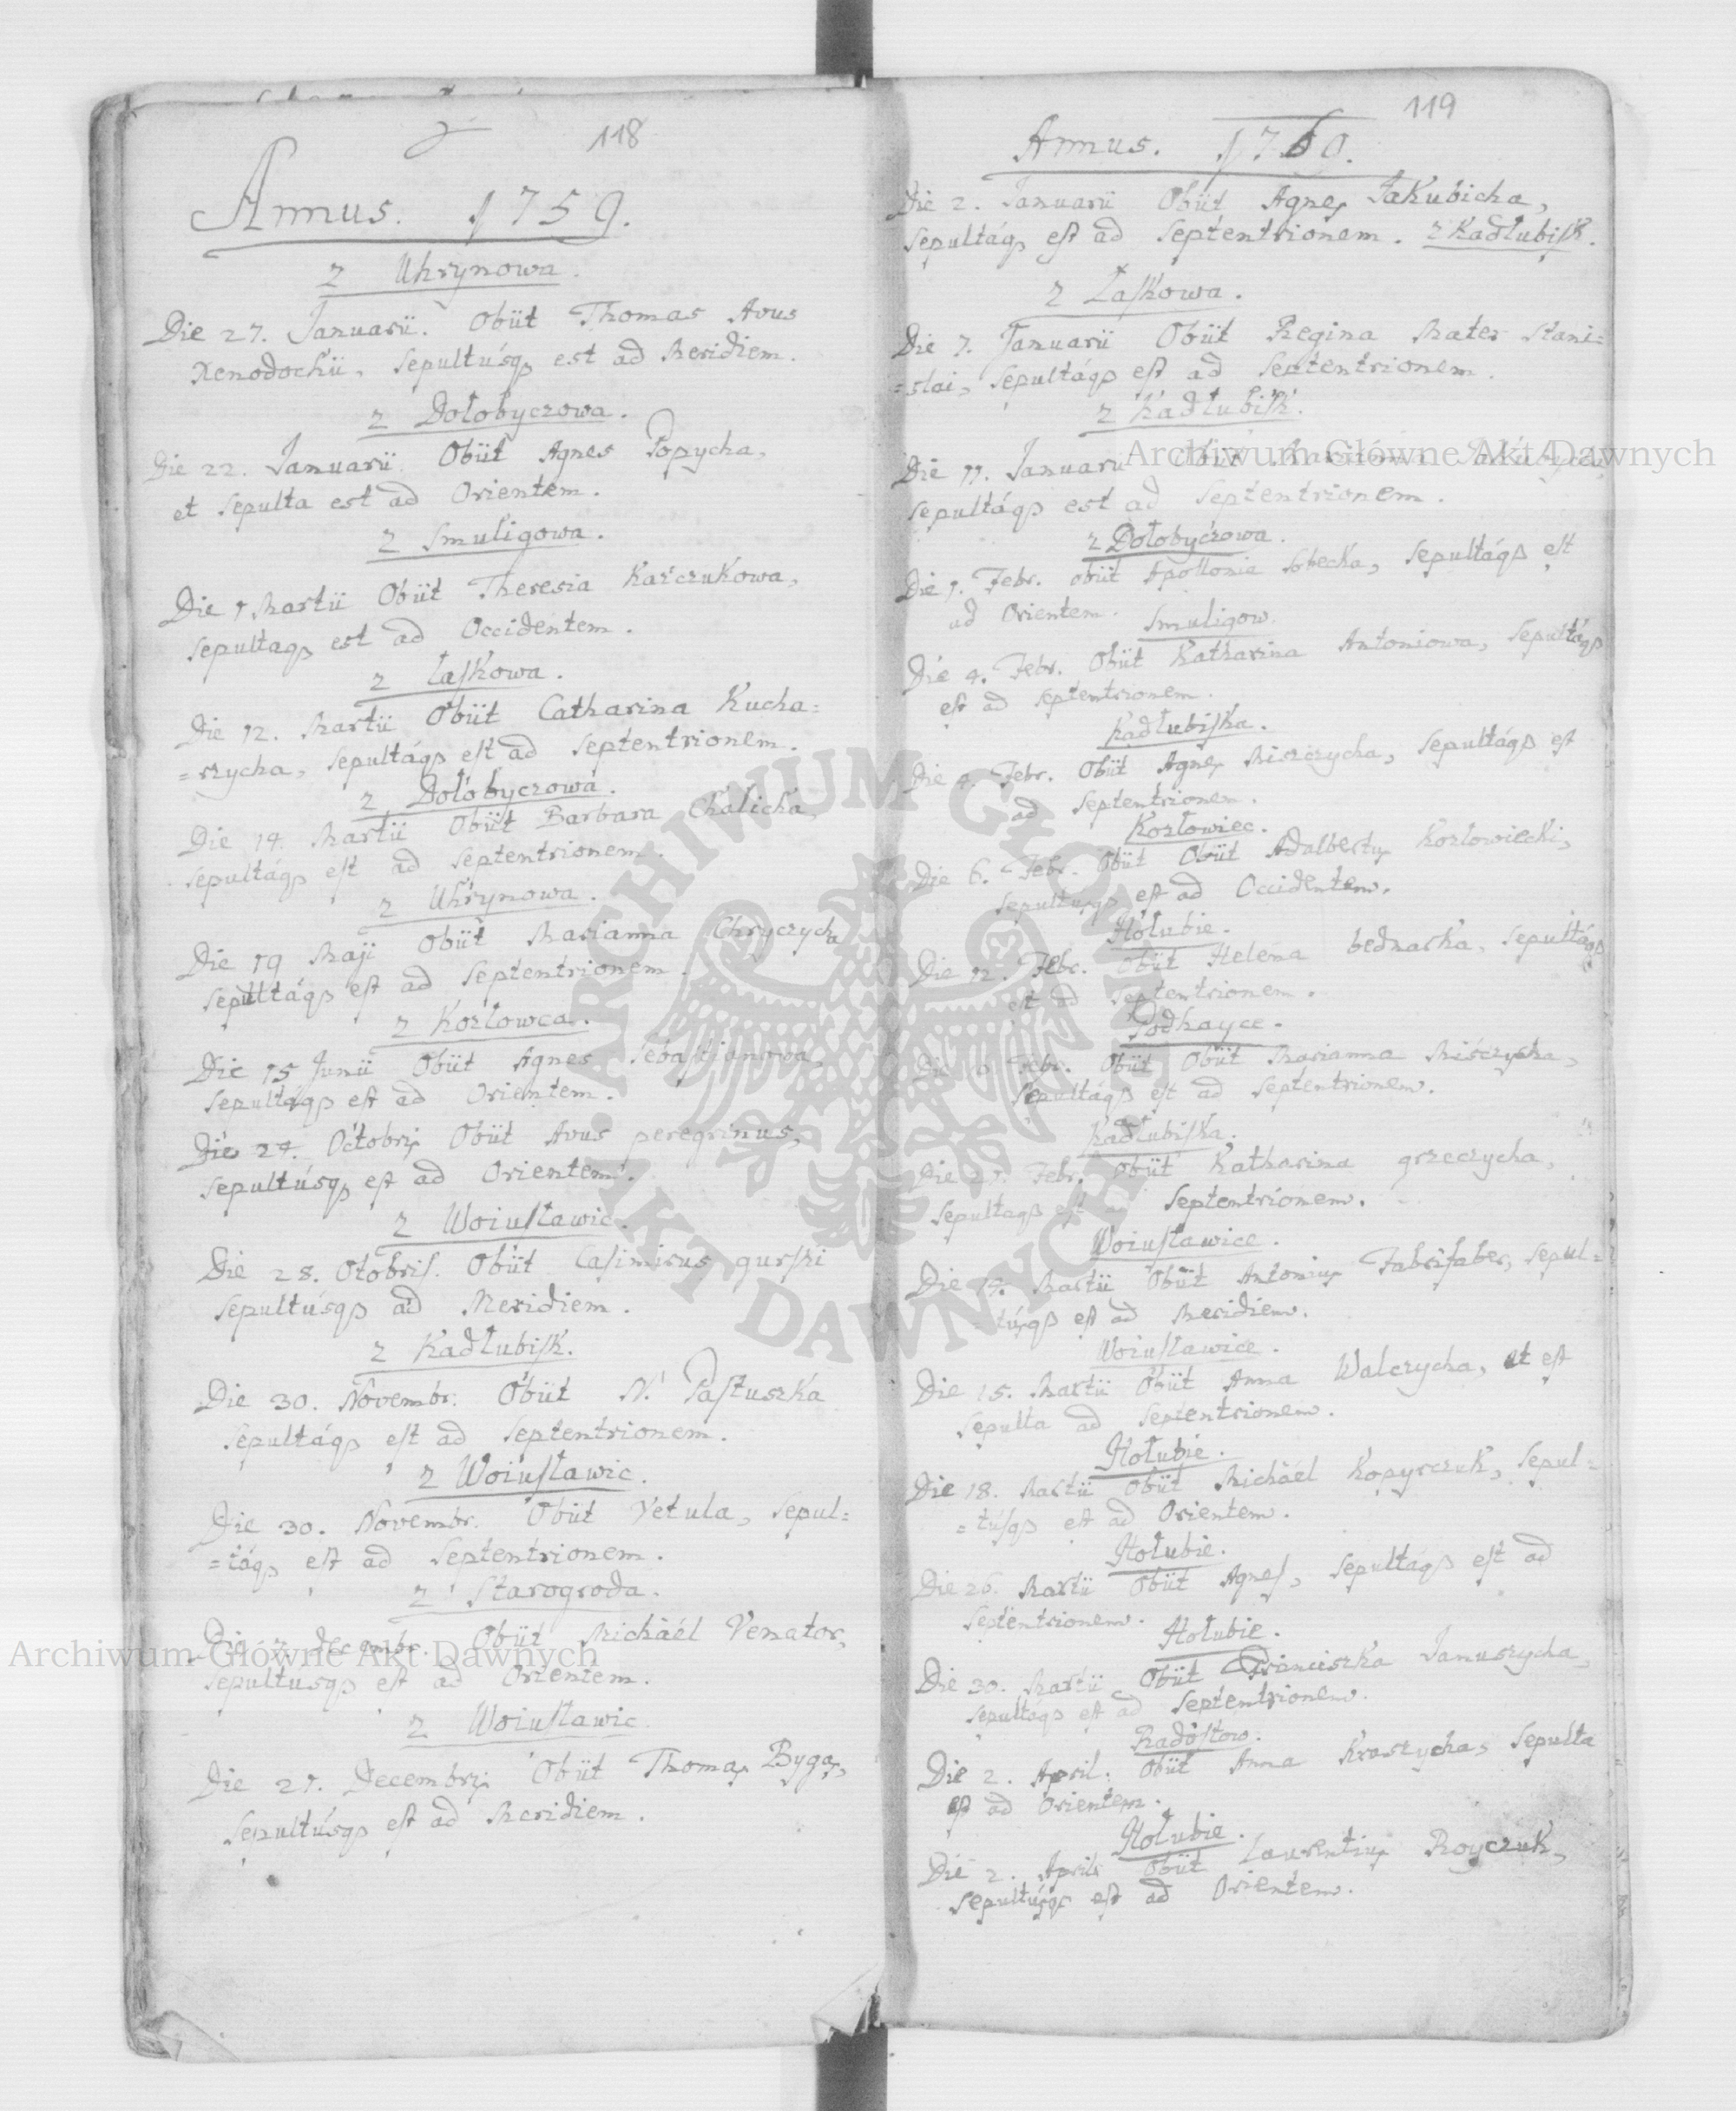 118
Annus. 1759.
z Uhrynowa.
Die 27. Januarii. Obiit Thomas Avus
Xenodochii, sepultusq3 est ad Meridiem.
z Dołobyczowa.
Die 22. Januarii Obiit Agnes Popycha,
et sepulta est ad Orientem.
z Smuligowa.
Die 1 Martii Obiit Theresia Karczukowa,
sepultaq3 est ad Occidentem.
z Łaskowa.
Die 12. Martii Obiit Catharina Kucha=
=rzycha, sepultáq3 est ad Septentrionem.
z Dołobyczowa.
Die 14. Martii Obiit Barbara Chalicha,
sepultáq3 est ad Septentrionem.
z Uhrynowa.
Die 19 Maji Obiit Marianna Chryczycha
sepultáq3 est ad Septentrionem.
z Kozłowca.
Die 15 Junii Obiit Agnes Sebastianowa,
sepultáq3 est ad Orientem.
Die 24. Octobris Obiit Avus peregrinus,
sepultúsq3 est ad Orientem.
z Woiusławic.
Die 28. Otobris. Obiit Casimirus gurski
sepultúsq3 ad Meridiem.
z Kadłubisk.
Die 30. Novembr. Obiit N. Pastuszka
sepultáq3 est ad Septentrionem.
z Woiusławic.
Die 30. Novembr. Obiit Vetula, sepul=
=táq3 est ad Septentrionem.
z Starogroda.
Die 7. Decembr. Obiit Michaël Venator,
sepultúsq3 est ad Orientem.
z Woiusławic.
Die 27. Decembris Obiit Thomas Bygas,
sepultúsq3 est ad Meridiem.
119
Annus. 1760.
Die 2. Januarii Obiit Agnes Jakubicha,
sepultáq3 est ad Septentrionem. z Kadłubisk.
z Łaskowa.
Die 7. Januarii Obiit Regina Mater Stani=
=slai, sepultáq3 est ad Septentrionem.
z Kadłubisk.
Die 11. Januarii Obiit
sepultáq3 est ad Septentrionem.
z Dołobyczowa.
Die 1. Febr. obiit Apollonia Sobecka, sepultáq3 est
ad Orientem.
Smuligow.
Die 4. Febr. Obiit Katharina Antoniowa, sepultáq3
est ad Septentrionem.
Kadłubiska.
Die 4. Febr. Obiit Agnes Miszczycha, sepultáq3 est
ad Septentrionem.
Kozłowiec.
Die 6. Febr. Obiit Obiit Adalbertus Kozłowiecki,
sepultusq3 est ad Occidentem.
Hołubie.
Die 12. Febr. Obiit Helena bednarka, sepultáq3
est ad Septentrionem.
Podhayce.
Die Febr. Obiit Obiit Marianna Miśczycha,
sepultáq3 est ad Septentrionem.
Kadłubiska.
Die 27. Febr. Obiit Katharina grzeczycha,
sepultaq3 est ad Septentrionem.
Woiusławice.
Die 14. Martii Obiit Antonius Fabrifaber, sepul=
=túsq3 est ad Meridiem.
Woiusławice.
Die 15. Martii Obiit Anna Walczycha, et est
sepulta ad Septentrionem.
Hołubie.
Die 18. Martii Obiit Michaël Kopyrczuk, sepul=
=túsq3 est ad Orientem.
Hołubie.
Die 26. Martii Obiit Agnes, sepultáq3 est ad
Septentrionem.
Hołubie.
Die 30. Martii Obiit Franciszka Januszycha,
sepultáq3 est ad Septentrionem.
Radostow.
Die 2. April. Obiit Anna Kraszycha, sepulta
est ad Orientem.
Hołubie.
Die 2. Aprilis Obiit Laurentius Royczuk,
sepultúsq3 est ad Orientem.
Archiwum Główne Akt Dawnych
Archiwum Główne Akt Dawnych
ARCHIWUM GŁÓWNE
AKT DAWNYCH